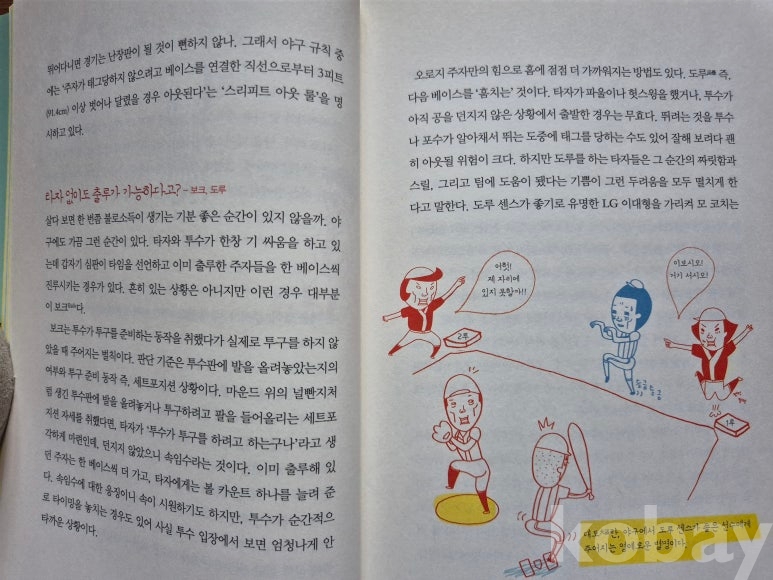 뛰어다니면 경기는 난장판이 될 것이 뻔하지 않나. 그래서 야구 규칙 중
에는 '주자가 태그당하지 않으려고 베이스를 연결한 직선으로부터 3피트
(91.4cm) 이상 벗어나 달렸을 경우 아웃된다'는 '스리피트 아웃 룰'을 명
시하고 있다.
타자 없이도 출루가 가능하다고? - 보크, 도루
살다 보면 한 번쯤 불로소득이 생기는 기분 좋은 순간이 있지 않을까. 야
구에도 가끔 그런 순간이 있다. 타자와 투수가 한창 기 싸움을 하고 있
는데 갑자기 심판이 타임을 선언하고 이미 출루한 주자들을 한 베이스씩
진루시키는 경우가 있다. 흔히 있는 상황은 아니지만 이런 경우 대부분
이 보크다.
보크는 투수가 투구를 준비하는 동작을 취했다가 실제로 투구를 하지 않
았을 때 주어지는 벌칙이다. 판단 기준은 투수판에 발을 올려놓았는지의
여부와 투구 준비 동작 즉, 세트포지션 상황이다. 마운드 위의 널빤지처
럼 생긴 투수판에 발을 올려놓거나 투구하려고 팔을 들어올리는 세트포
지션 자세를 취했다면, 타자가 '투수가 투구를 하려고 하는구나'라고 생
각하게 마련인데, 던지지 않았으니 속임수라는 것이다. 이미 출루해 있
던 주자는 한 베이스씩 더 가고, 타자에게는 볼 카운트 하나를 늘려 준
다. 속임수에 대한 응징이니 속이 시원하기도 하지만, 투수가 순간적으
로 타이밍을 놓치는 경우도 있어 사실 투수 입장에서 보면 엄청나게 안
타까운 상황이다.
오로지 주자만의 힘으로 홈에 점점 더 가까워지는 방법도 있다. 도루 즉,
다음 베이스를 '훔치는' 것이다. 타자가 파울이나 헛스윙을 했거나, 투수가
아직 공을 던지지 않은 상황에서 출발한 경우는 무효다. 뛰려는 것을 투수
나 포수가 알아채서 뛰는 도중에 태그를 당하는 수도 있어 잘해 보려다 괜
히 아웃될 위험이 크다. 하지만 도루를 하는 타자들은 그 순간의 짜릿함과
스릴, 그리고 팀에 도움이 됐다는 기쁨이 그런 두려움을 모두 떨치게 한
다고 말한다. 도루 센스가 좋기로 유명한 LG 이대형을 가리켜 모 코치는
어헛!
제 자리에
있지 못할까!!
이보시오!
거기 서시오!
2루
슬금
슬금
1루
대도 야구에서 도루 센스가 좋은 선수에게
주어지는 명예로운 별명이다.
kobay